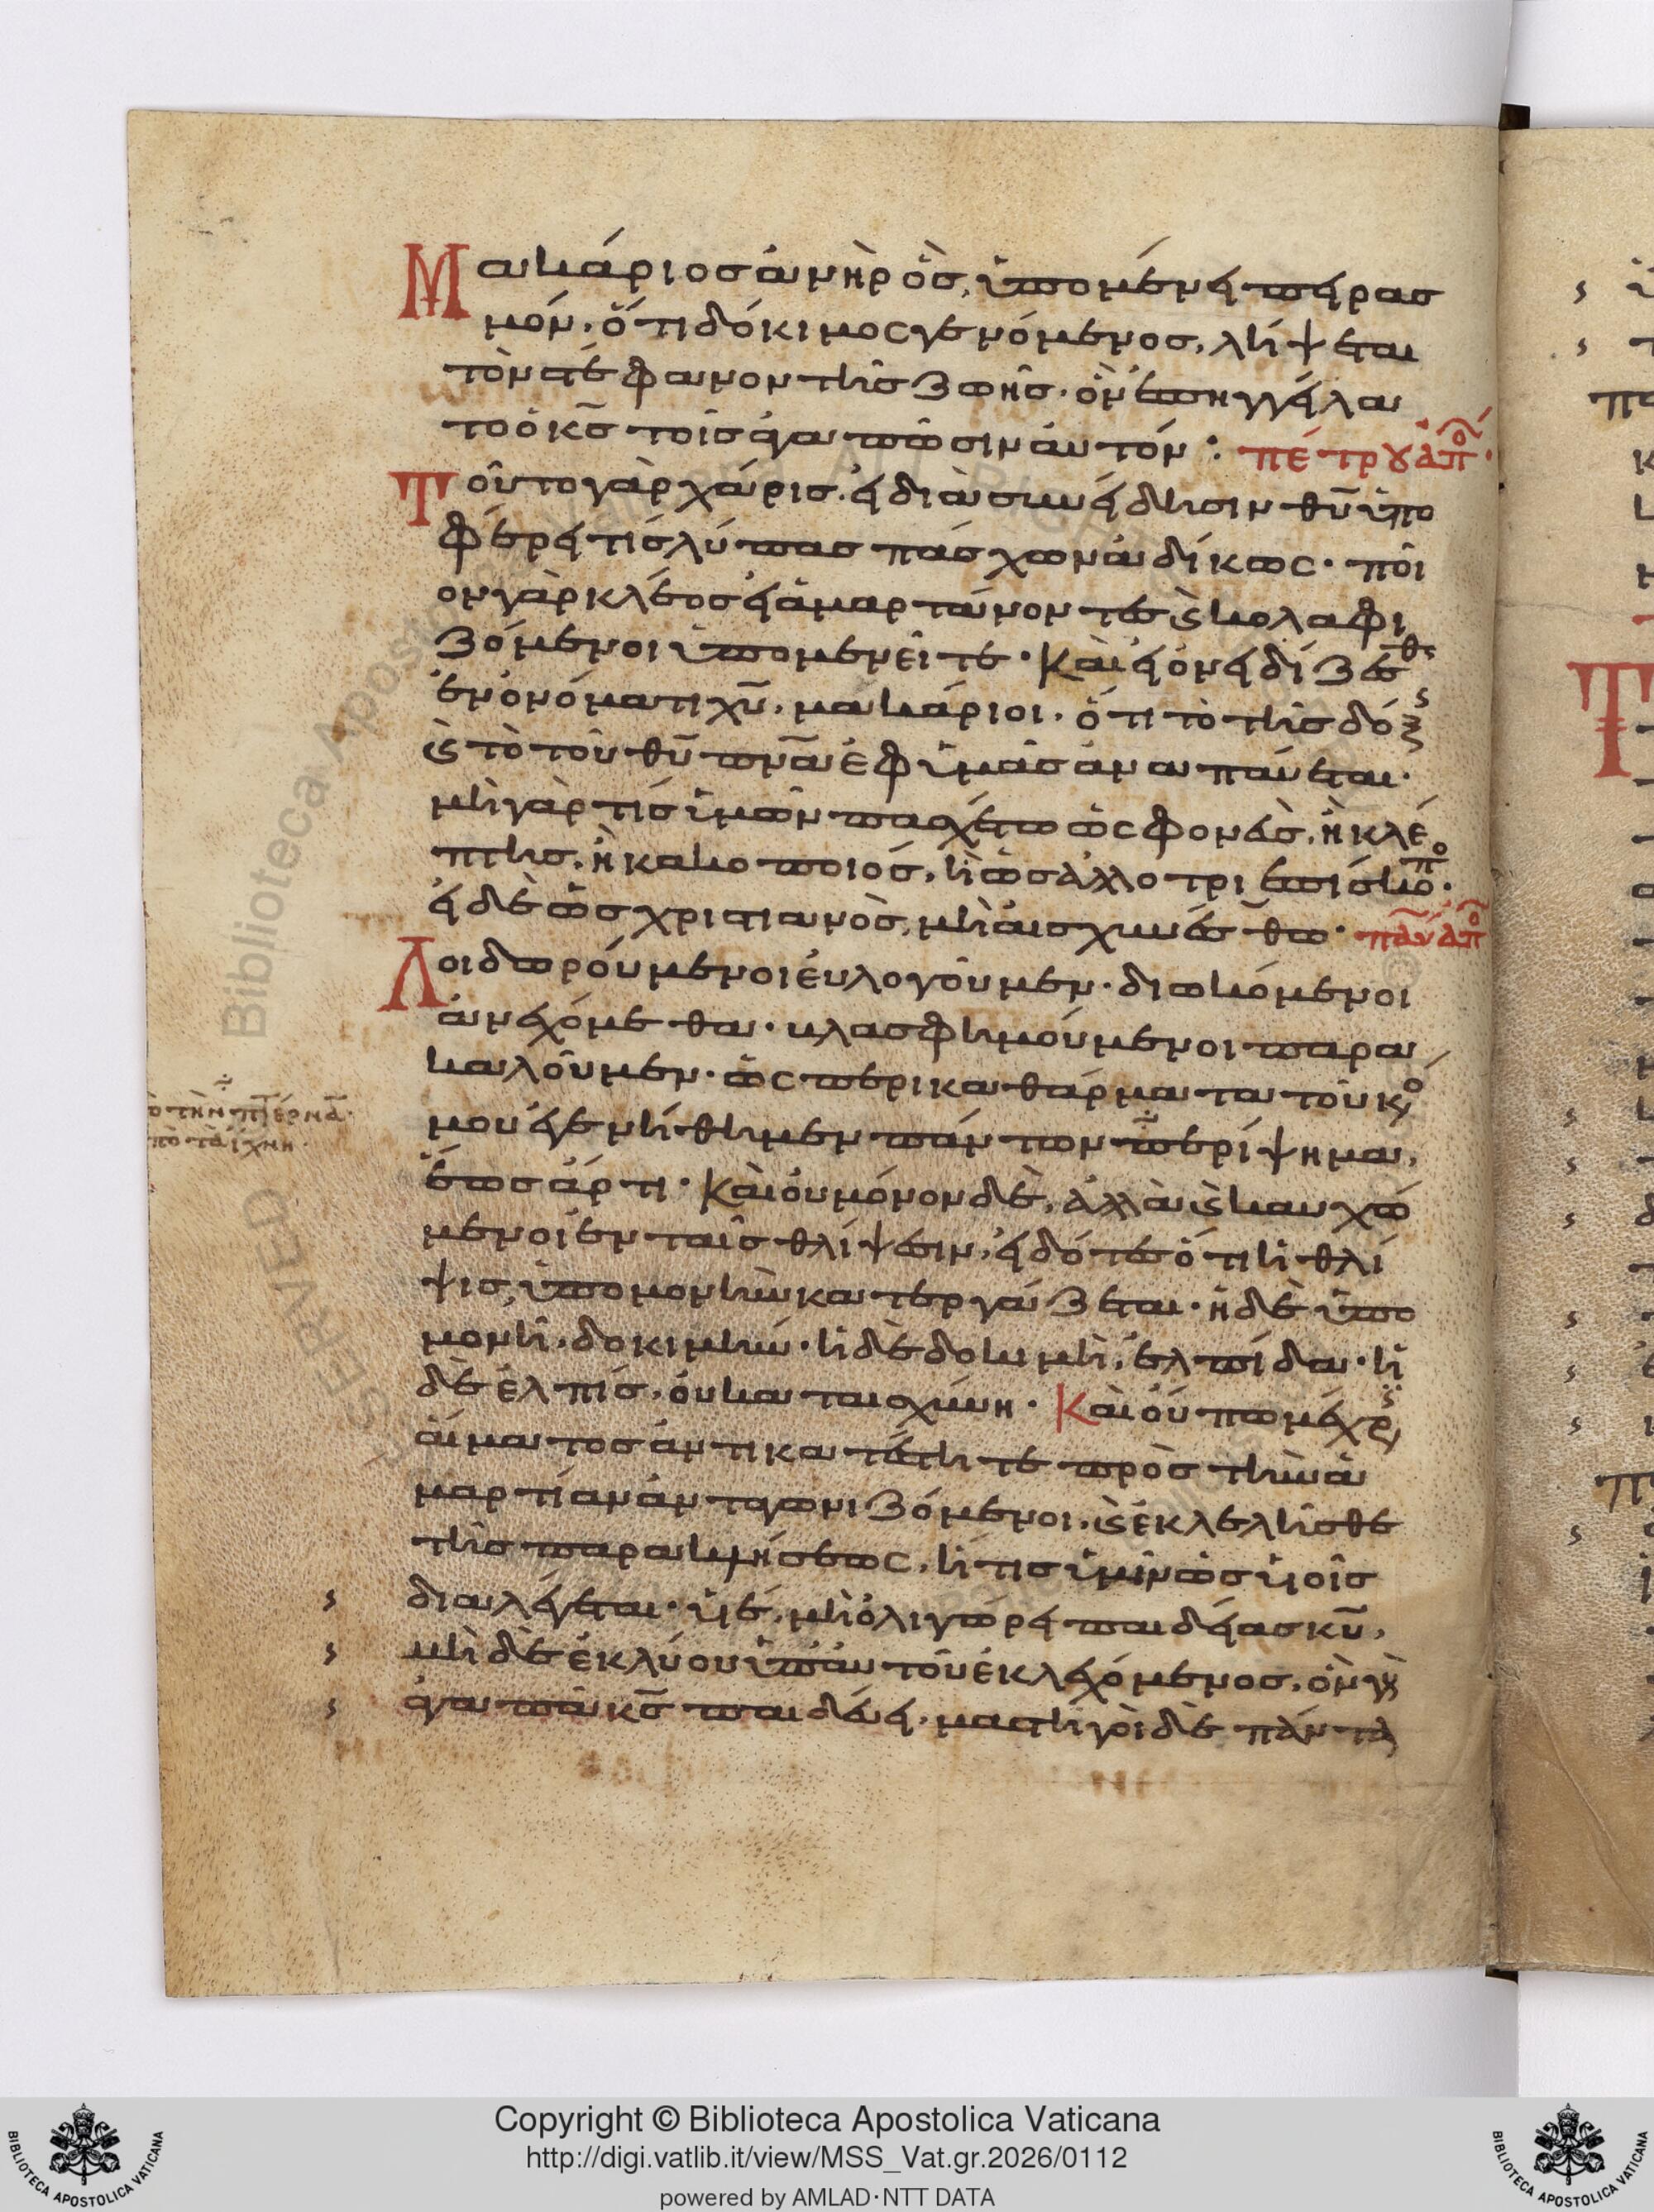 Μακάριος ἀνὴρ ὃς, ὑπομένει πειρασ
μόν. ὅτι δόκιμος γενόμενος, λήψεται
τὸν στέφανον τῆς ζωῆς. ὃν ἐπηγγείλα
το ὁ κς̄ τοῖς ἀγαπῶσιν αὐτόν : πέτρου ἀπο
Τοῦτο γὰρ χάρις. εἰ διὰ συνείδησιν θῡ ὑπο
φέρει τίς λύπας πάσχων ἀδίκως. ποῖ
ον γὰρ κλέος εἰ ἁμαρτάνοντες ϗ κολαφι
ζόμενοι ὑπομενεῖτε. Καὶ εἰ ὀνειδίζεσθε
ἐν ὀνόματι χῡ, μακάριοι. ὅτι τὸ τῆς δόξης
ϗ τὸ τοῦ θῡ πνᾱ ἐφ ὑμᾶς ἀναπαύεται.
μὴ γὰρ τίς ὑμῶν πασχέτω ὡς φονεὺς, ἢ κλέ
πτης, ἢ κακοποιός, ἢ ὡς ἀλλοτριεπίσκοπο.
εἰ δὲ ὡς χριστιανὸς, μὴ αἰσχυνέσθω. παύ ἀπο
Λοιδωρούμενοι ἐυλογοῦμεν. διωκόμενοι
ἀνεχόμεθα. βλασφημούμενοι παρα
καλοῦμεν. ὡς περικαθάρματα τοῦ κό
μου ἐγενήθημεν πάντων περίψημα,
ἕως ἄρτι. Καὶ οὐ μόνον δὲ, ἀλλὰ ϗ καυχώ
μενοι ἐν ταῖς θλίψεσιν, εἰδότες ὅτι ἡ θλί
ψις, ὑπομονὴν κατεργάζεται. ἡ δὲ ὑπο
μονὴ, δοκιμήν. ἡ δὲ δοκιμὴ, ἐλπίδα. ἡ
δὲ ἐλπίς, οὐ καταισχύνη. Καὶ οὔπω μέχρις
αἵματος ἀντικατέστητε πρὸς τὴν ἁ
μαρτίαν ἀνταγωνιζόμενοι, ϗ ἐκλελῆσθε
τῆς παρακλήσεως, ἥτις ὑμῖν ὡς υἱοῖς
διαλέγεται. υἱέ, μὴ ὀλιγώρει παιδείας κῡ,
μὴ δὲ ἐκλύου ὑπ' αὐτοῦ ἐλεγχόμενος. ὃν γὰρ
ἀγαπᾶ κς̄ παιδεύει. μαστιγοῖ δὲ πάντα
Copyright © Biblioteca Apostolica Vaticana
http://digi.vatlib.it/view/MSS_Vat.gr.2026/0112
powered by AMLAD·NTT DATA